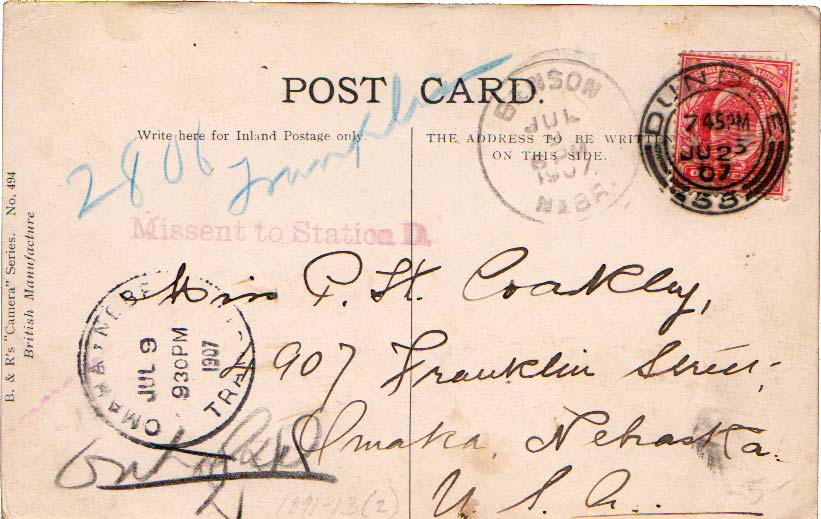 POST CARD.
Write here for Inland Postage only.
THE ADDRESS TO BE WRITTEN
ON THIS SIDE.
BENSON
JUL
1907
NEBR.
DUNDEE
745PM
JU 25
07
2806 Franklin
Missent to Station D.
B. & R's "Camera" Series. No. 494
British Manufacture
Miss P. St. Coakley,
4907 Franklin Street,
Omaha, Nebraska.
U. S. A.
OMAHA, NEBR.
JUL 9
930PM
1907
TRAN
1891-13(2)